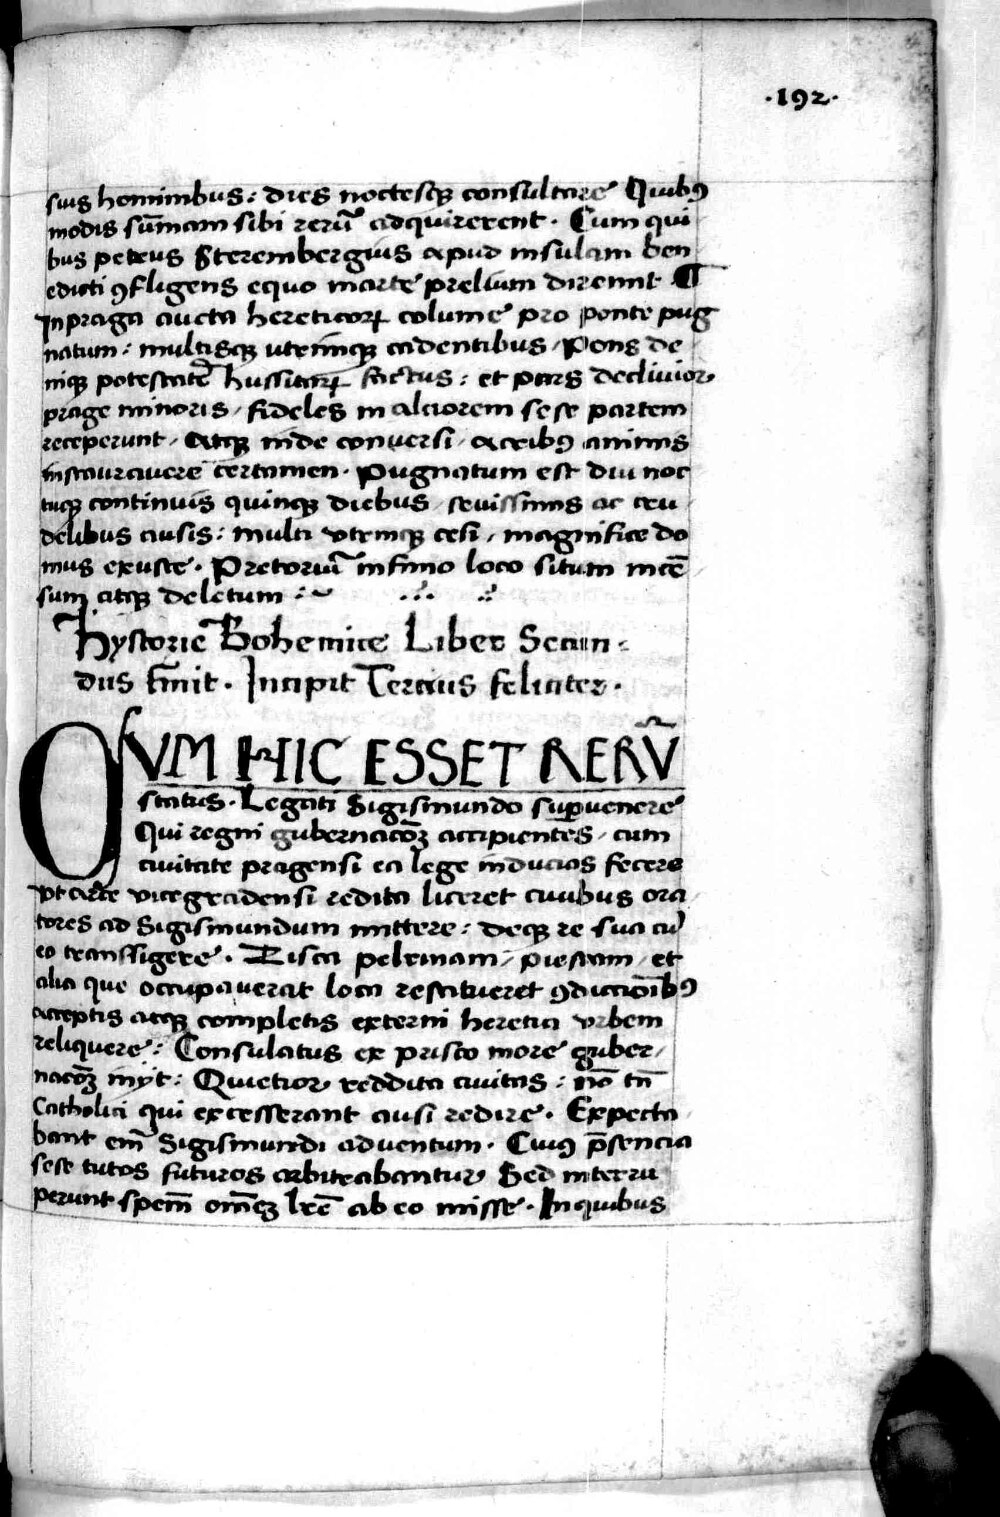 ·192·
suis hominibus: dies noctesqꝫ consultare Quibꝰ
modis su̅mam sibi reru̅ adquirerent. Cum qui
bus petrus Sterembergius apud insulam ben
edicti ꝯfligens equo marte prelium diremit. ¶
In praga aucta hereticoꝝ colume pro ponte pug
natum: multisqꝫ utrimqꝫ cadentibus, Pons de
niqꝫ potestate̅ hussitaꝝ factus: et pars decliuior
prage minoris, fideles in alciorem sese partem
receperunt, atqꝫ inde conuersi, acribꝰ animis
instauravere certamen. Pugnatum est diu noc
tuqꝫ continuis quinqꝫ diebus, seuissimis ac cru
delibus ausis: multi vtrinqꝫ cesi, magnifice do
mus exuste. Pretoriu̅ infimo loco situm ince̅
sum atqꝫ deletum :~
Hystorie Bohemice Liber Secun-
dus finit. Incipit Tercius feliciter.
QVM HIC ESSET RERV̅
status. Legati Sigismundo sup̱uenere
Qui regni gubernaco̅ꝫ accipientes, cum
ciuitate pragensi ea lege inducias fecere
vt arce vicegradensi redita liceret ciuibus ora
tores ad Sigismundum mittere: deqꝫ re sua cu̅
eo transsigere. Zisca pelzinam, piestam, et
alia que occupaverat loca restitueret ꝯdiccio̅ibꝰ
acceptis atqꝫ completis externi heretici vrbem
reliquere: Consulatus ex prisco more guber,
naco̅ꝫ inijt: Quietior reddita ciuitas: no̅ tn̅
Catholici qui excesserant ausi redire. Expecta
bant em̅ Sigismundi aduentum. Cuiꝰ p̅sencia
sese tutos futuros arbitrabantur Sed interru
perunt spem̅ om̅eꝫ lr̅e ab eo misse. In quibus